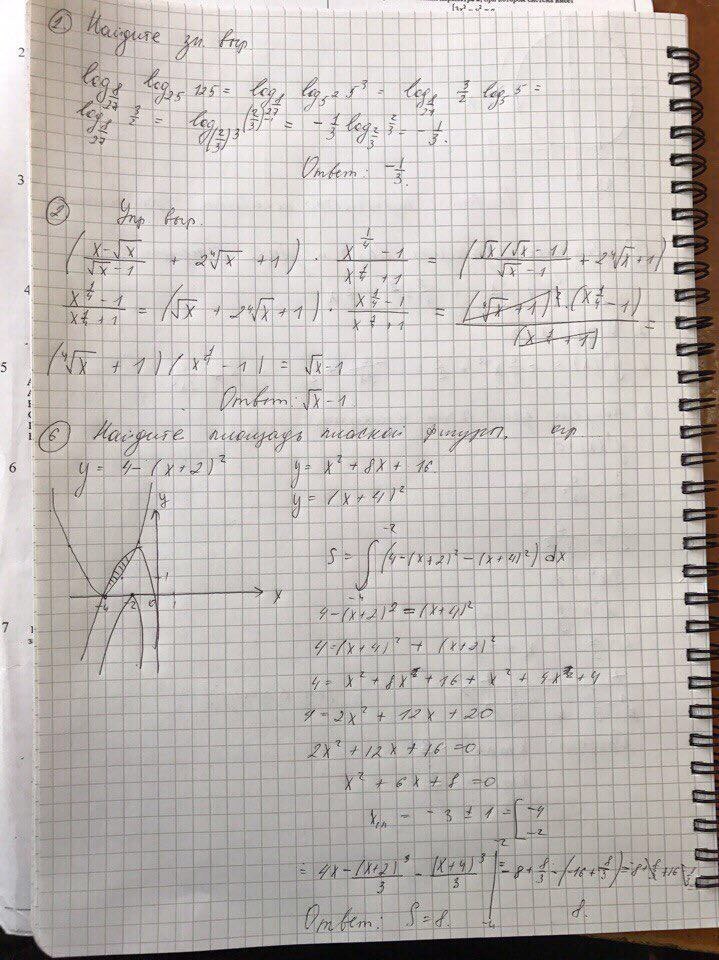 1 Найдите зн. выр.
log_{8/27} log_{25} 125 = log_{8/27} log_{5^2} 5^3 = log_{8/27} 3/2 log_5 5 =
log_{8/27} 3/2 = log_{(2/3)^3} (2/3)^{-1} = -1/3 log_{2/3} 2/3 = -1/3.
Ответ: -1/3.
2 Упр выр.
((x-√x)/(√x-1) + 2∜x + 1) · (x^{1/4} - 1)/(x^{1/4} + 1) = (√x(√x-1)/(√x-1) + 2∜x + 1)
(x^{1/4} - 1)/(x^{1/4} + 1) = (√x + 2∜x + 1) · (x^{1/4} - 1)/(x^{1/4} + 1) = (∜x + 1)^2 · (x^{1/4} - 1)/(x^{1/4} + 1) =
(∜x + 1)(x^{1/4} - 1) = √x - 1
Ответ: √x - 1
6 Найдите площадь плоской фигуры, огр.
y = 4-(x+2)^2 y = x^2 + 8x + 16.
y = (x+4)^2
y
1
-4 -2 0 1 x
S = ∫_{-4}^{-2} (4-(x+2)^2 - (x+4)^2) dx
4-(x+2)^2 = (x+4)^2
4 = (x+4)^2 + (x+2)^2
4 = x^2 + 8x + 16 + x^2 + 4x + 4
4 = 2x^2 + 12x + 20
2x^2 + 12x + 16 = 0
x^2 + 6x + 8 = 0
= -3 ± 1 = [ -4
-2
= 4x - (x+2)^3/3 - (x+4)^3/3 |_{-4}^{-2} =
Ответ: S = 8. 8.
2
3
4
5
6
7